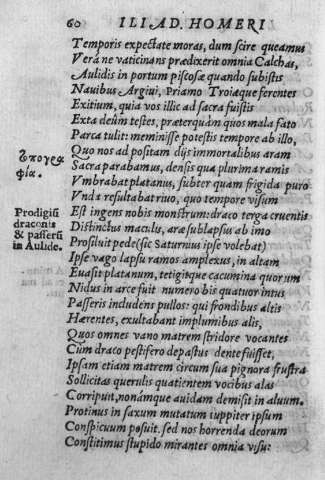 60 ILIAD. HOMERI
Temporis expectate moras, dum scire queamus
Veráne vaticinans prædixerit omnia Calchas,
Aulidis in portum piscosæ quando subistis
Nauibus Argiui, Priamo Troiæque ferentes
Exitium, quia vos illic ad sacra fuistis
Exta deûm testes, præterquàm quos mala fato
Parca tulit: meminisse potestis tempore ab illo,
Quo nos ad positam dijs immortalibus aram
Sacra parabamus, densis qua plurima ramis
Vmbrabat platanus, subter quam frigida puro
Vnda resultabat riuo, quo tempore visum
Est ingens nobis monstrum: draco terga cruentis
Distinctus maculis, aræ sublapsus ab imo
Prosiluit pede (sic Saturnius ipse volebat)
Ipse vago lapsu ramos amplexus, in altam
Euasit platanum, tetigitque cacumina quorum
Nidus in arce fuit numero bis quatuor intus
Passeris includens pullos: qui frondibus altis
Hærentes, exultabant implumibus alis,
Quos omnes vano matrem stridore vocantes
Cùm draco pestifero depastus dente fuisset,
Ipsam etiam matrem circum sua pignora frustra
Sollicitas querulis quatientem vocibus alas
Corripuit, nonamque auidam demisit in aluum.
Protinus in saxum mutatum iuppiter ipsum
Conspicuum posuit. sed nos horrenda deorum
Constitimus stupido mirantes omnia visu:
Prodigiū
draconis
& passerū
in Aulide.